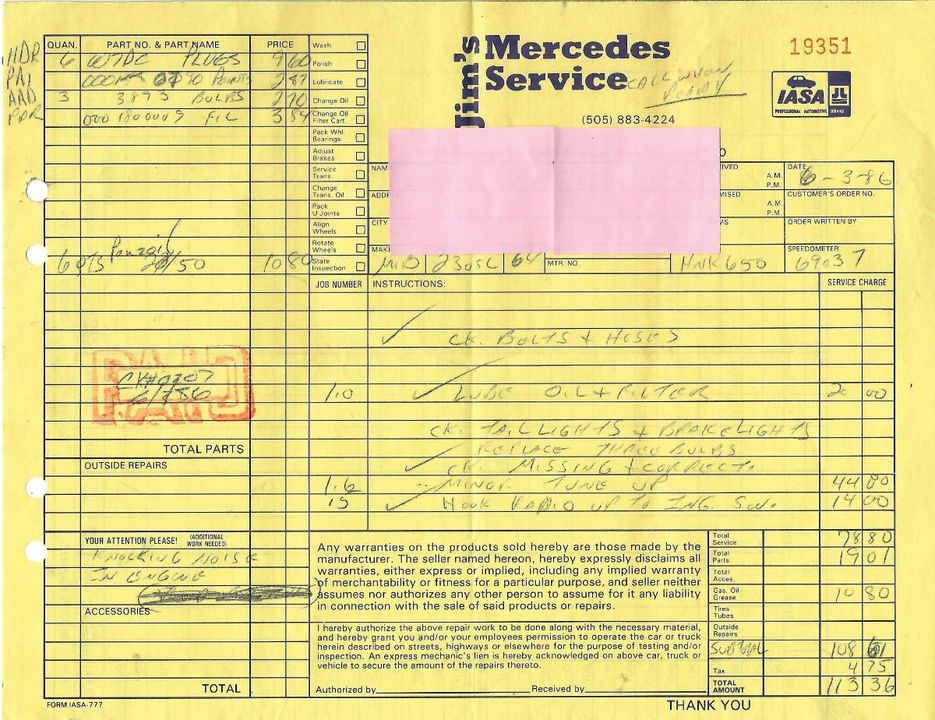 Jim's Mercedes Service
19351
CALL WHEN READY
(505) 883-4224
IASA
PROFESSIONAL AUTOMOTIVE SERVICE
QUAN. PART NO. & PART NAME PRICE
6 W7DC PLUGS 9 60
POINTS 2 87
3 3893 BULBS 2 70
000 1800009 FIL 3 84
6 QTS Penzoil 20/50 10 80
Wash
Polish
Lubricate
Change Oil
Change Oil Filter Cart.
Pack Whl. Bearings
Adjust Brakes
Service Trans.
Change Trans. Oil
Pack U Joints
Align Wheels
Rotate Wheels
State Inspection
NAM
ADDR
CITY
MAK
IVED A.M. P.M.
MISED A.M. P.M.
DATE 6-3-86
CUSTOMER'S ORDER NO.
ORDER WRITTEN BY
SPEEDOMETER
MB 230SL 64 MTR. NO. HNK650 69037
JOB NUMBER INSTRUCTIONS: SERVICE CHARGE
CK. BOLTS + HOSES
1.0 LUBE OIL + FILTER 20 00
CK. TAIL LIGHTS + BRAKE LIGHTS
REPLACE THREE BULBS
CK. MISSING + CORRECT.
1.6 MINOR TUNE UP 44 80
.5 HOOK RADIO UP TO ING. SW. 14 00
PAID
TOTAL PARTS
OUTSIDE REPAIRS
YOUR ATTENTION PLEASE! (ADDITIONAL WORK NEEDED)
KNOCKING NOISE
IN ENGINE
ACCESSORIES
TOTAL
Any warranties on the products sold hereby are those made by the
manufacturer. The seller named hereon, hereby expressly disclaims all
warranties, either express or implied, including any implied warranty
of merchantability or fitness for a particular purpose, and seller neither
assumes nor authorizes any other person to assume for it any liability
in connection with the sale of said products or repairs.
I hereby authorize the above repair work to be done along with the necessary material,
and hereby grant you and/or your employees permission to operate the car or truck
herein described on streets, highways or elsewhere for the purpose of testing and/or
inspection. An express mechanic's lien is hereby acknowledged on above car, truck or
vehicle to secure the amount of the repairs thereto.
Authorized by Received by
Total Service 78 80
Total Parts 19 01
Total Acces.
Gas, Oil Grease 10 80
Tires Tubes
Outside Repairs
SUBTOTAL 108 61
Tax 4 75
TOTAL AMOUNT 113 36
FORM IASA-777
THANK YOU